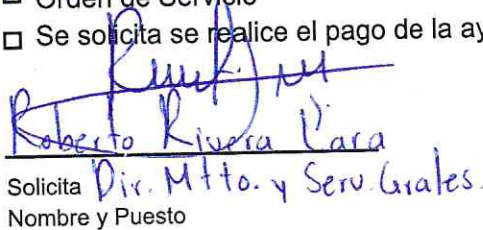 Orden de Servicio
□ Se solicita se realice el pago de la ay
Roberto Rivera Lara
Solicita Dir. Mtto. y Serv. Grales.
Nombre y Puesto